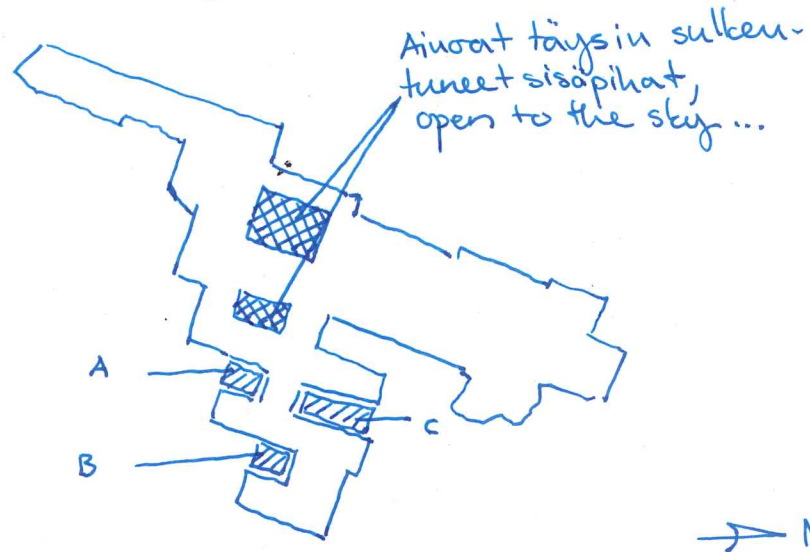 Ainoat täysin sulkeu-
tuneet sisäpihat,
open to the sky...
A
C
B
N